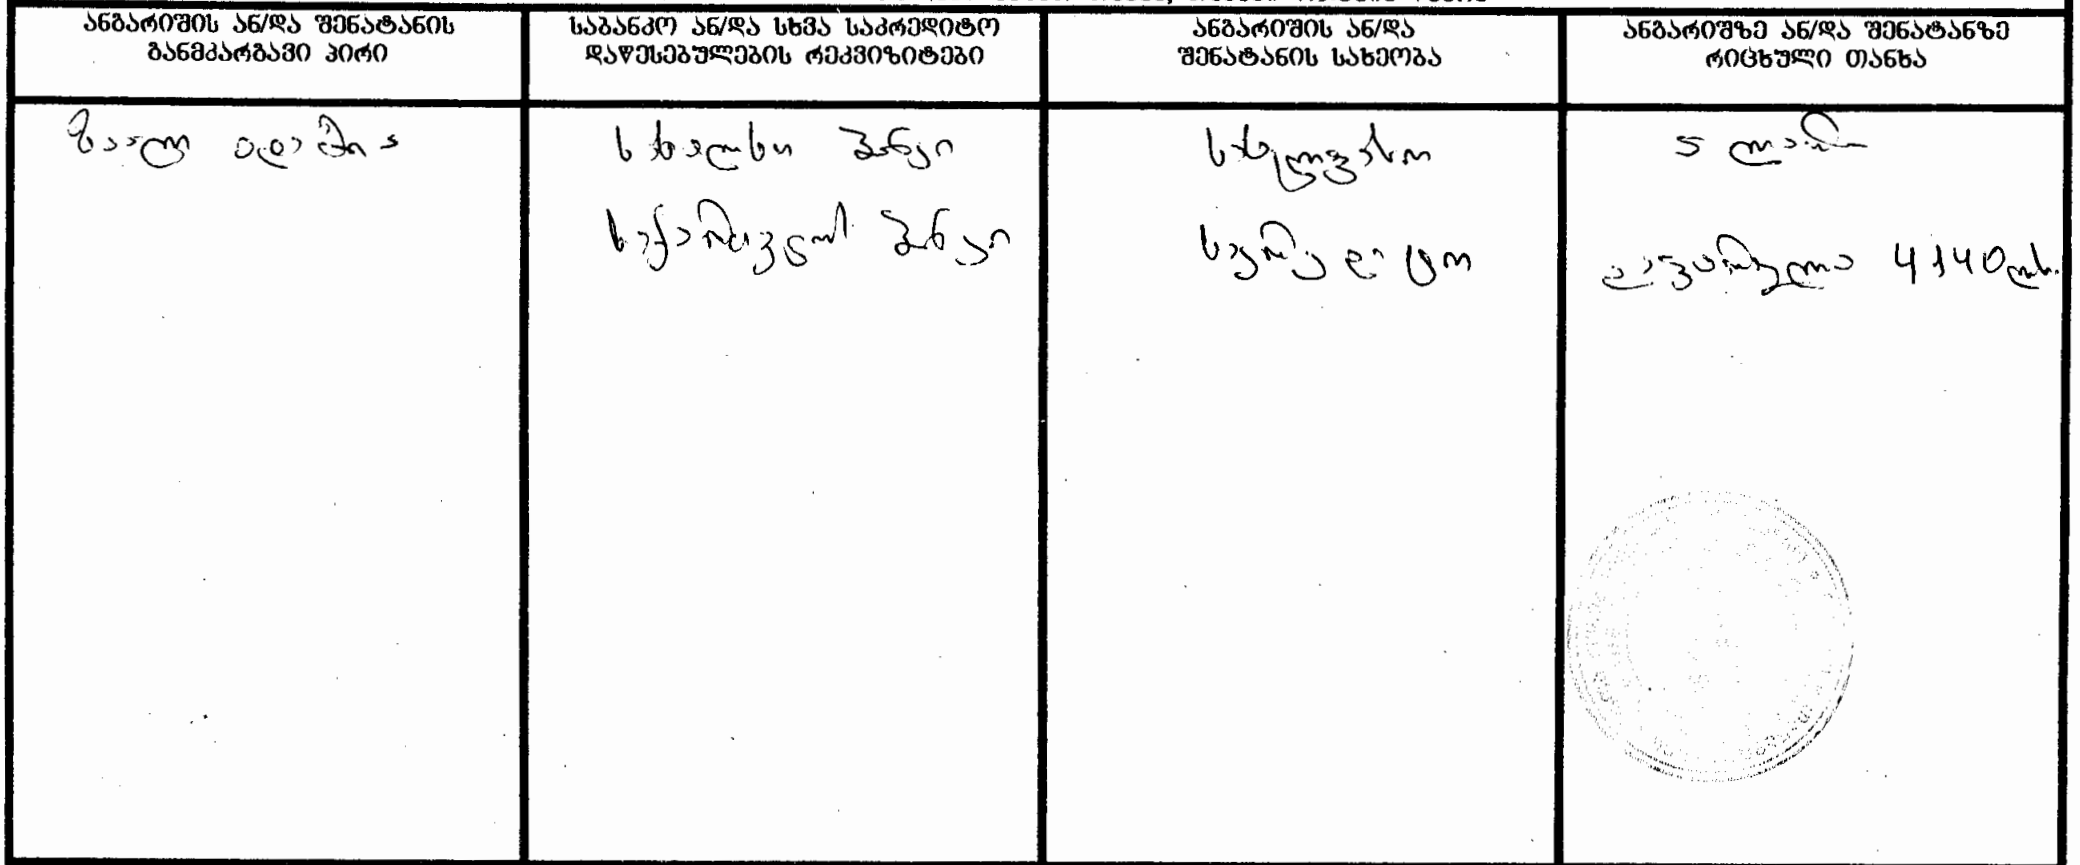 ანგარიშის ან/და შენატანის
განმკარგავი პირი
საბანკო ან/და სხვა საკრედიტო
დაწესებულების რეკვიზიტები
ანგარიშის ან/და
შენატანის სახეობა
ანგარიშზე ან/და შენატანზე
რიცხული თანხა
ზაალ
ხალხის ბანკი
სახელფასო
5 ლარი
საქართველოს ბანკი
საკრედიტო
დაფარულია 4140